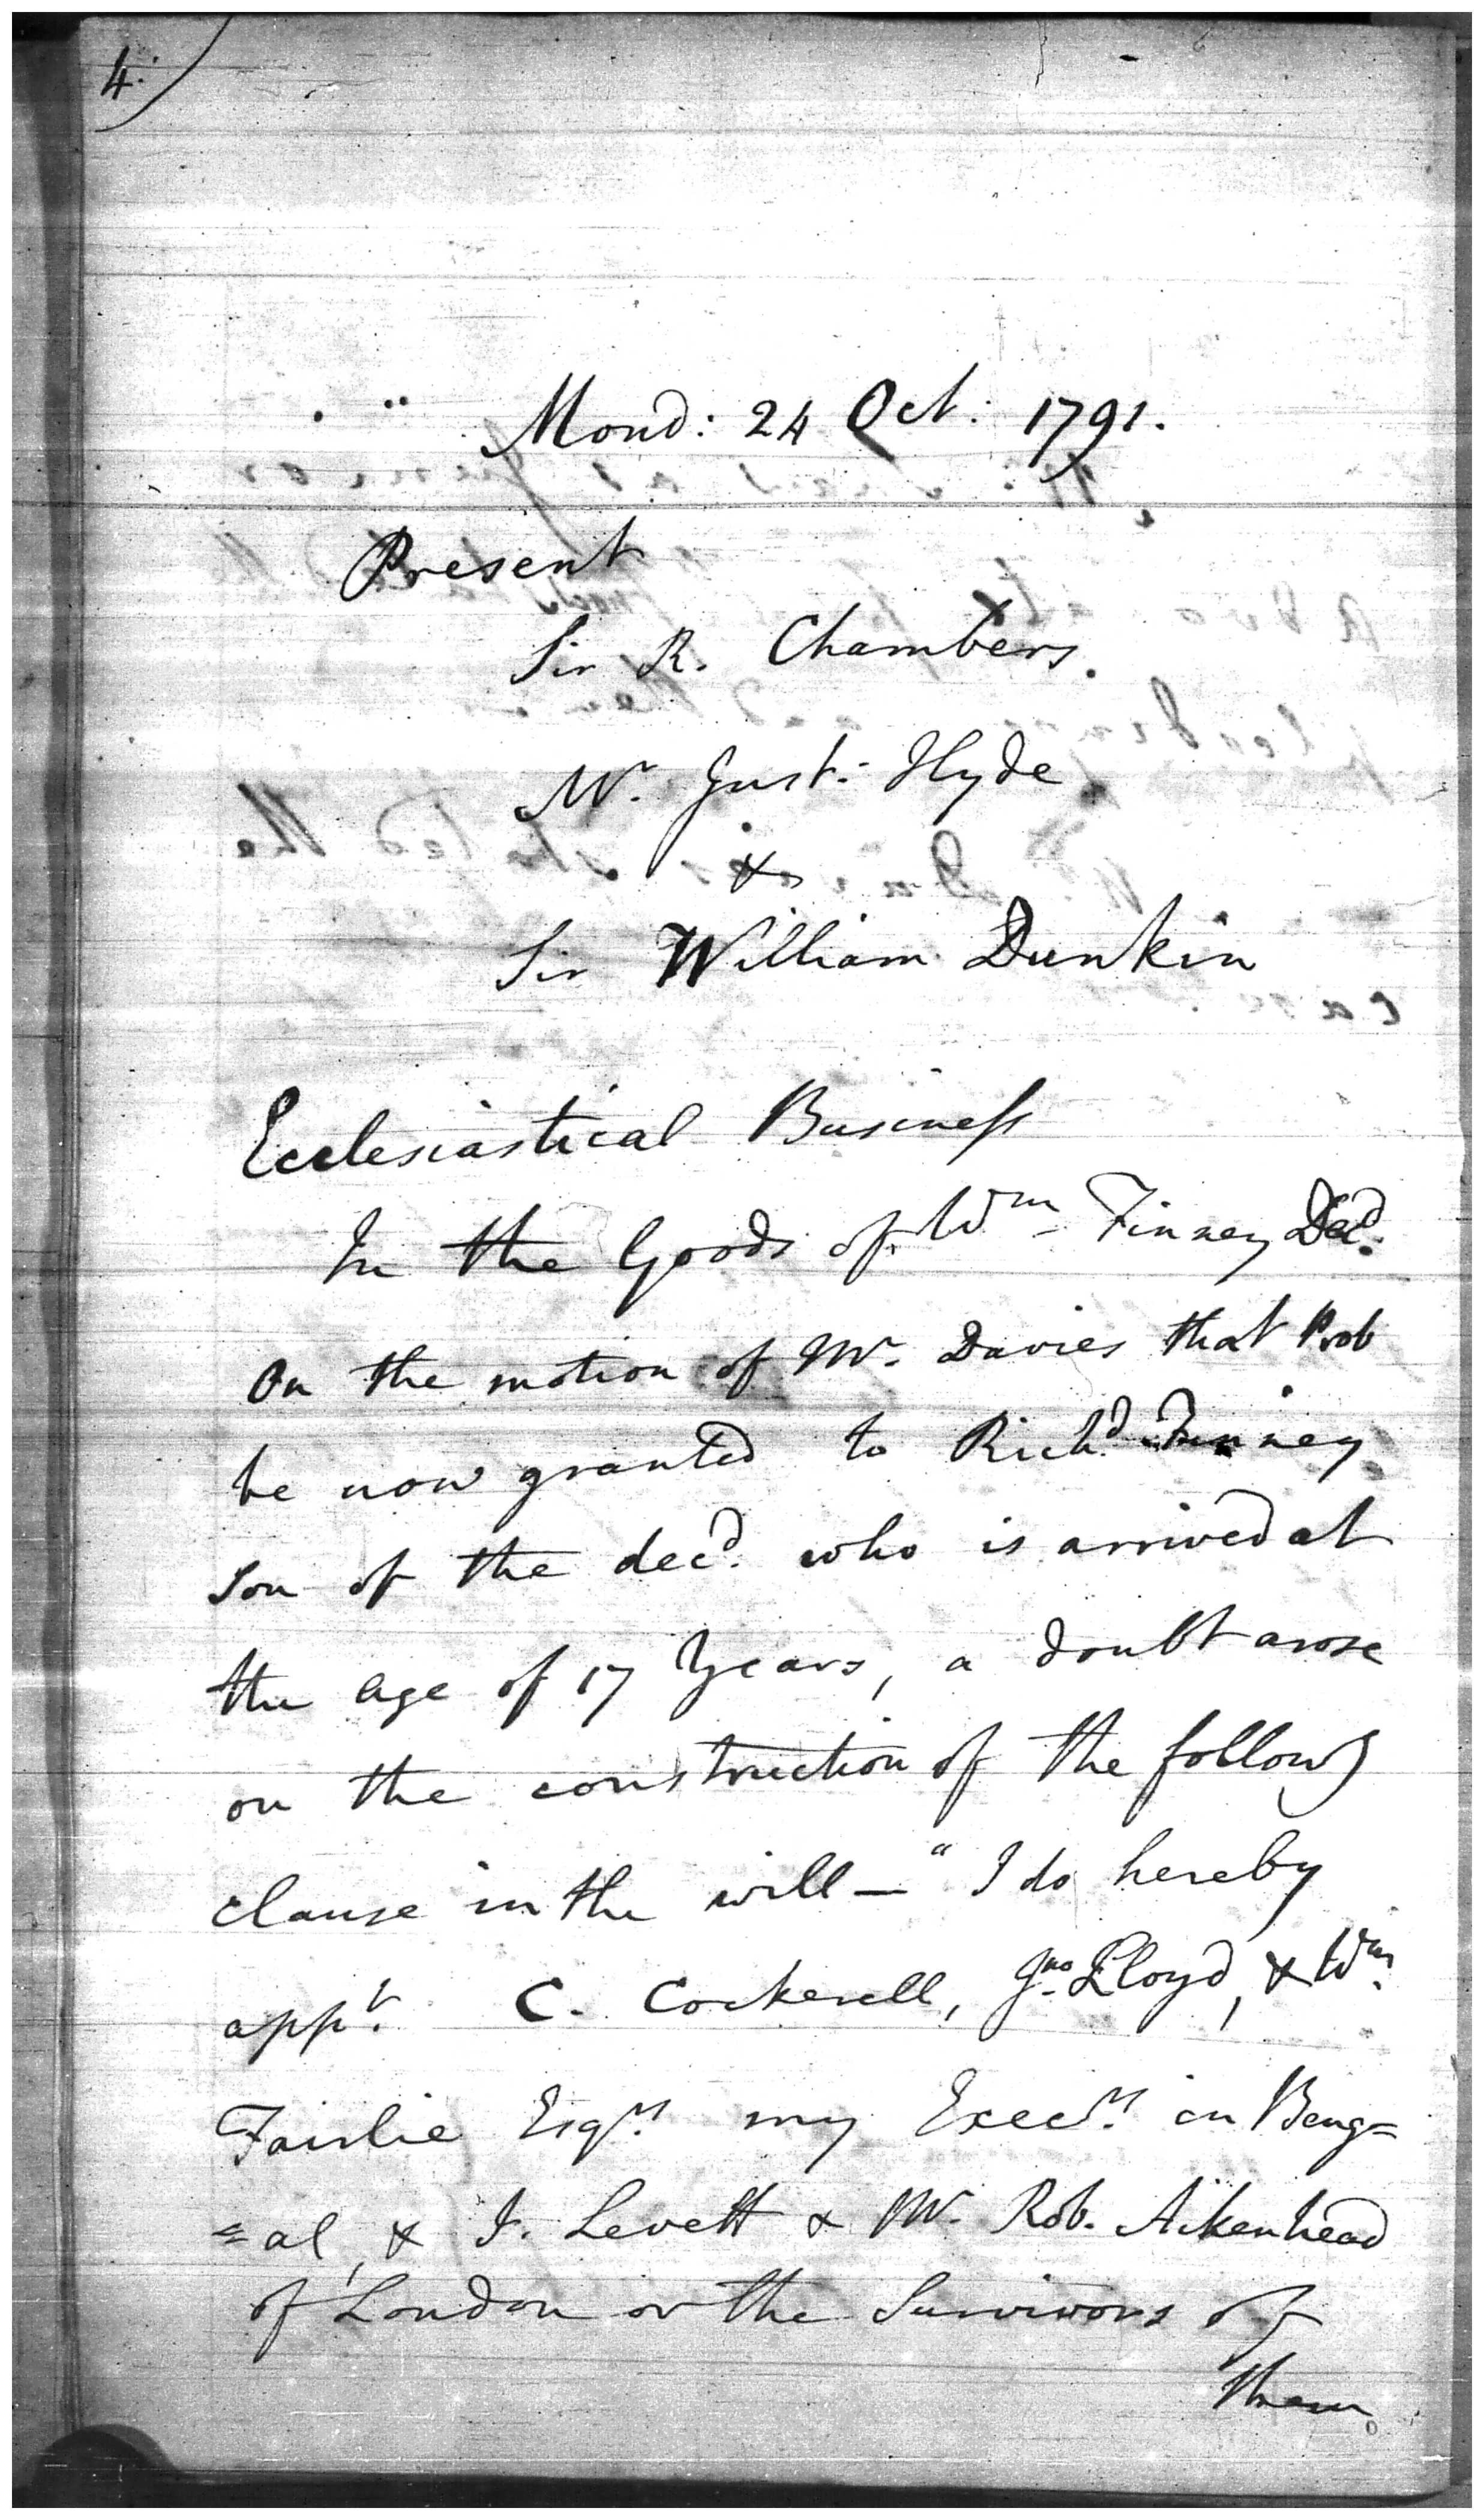 4.)
Mond: 24 Oct: 1791.
Present
Sir R. Chambers.
Mr. Just: Hyde
&
Sir William Dunkin
Ecclesiastical Business
In the Goods of Wm Finney Decd.
On the motion of Mr. Davies that Prob
be now granted to Richd. Finney
Son of the decd. who is arrived at
the age of 17 Years, a doubt arose
on the construction of the followg
clause in the will — "I do hereby
appt. C. Cockerell, Jno. Lloyd, & Wm.
Fairlie Esqrs. my Execrs. in Beng=
=al, & J. Levett & Mr. Rob. Aikenhead
of London or the Survivors of
them